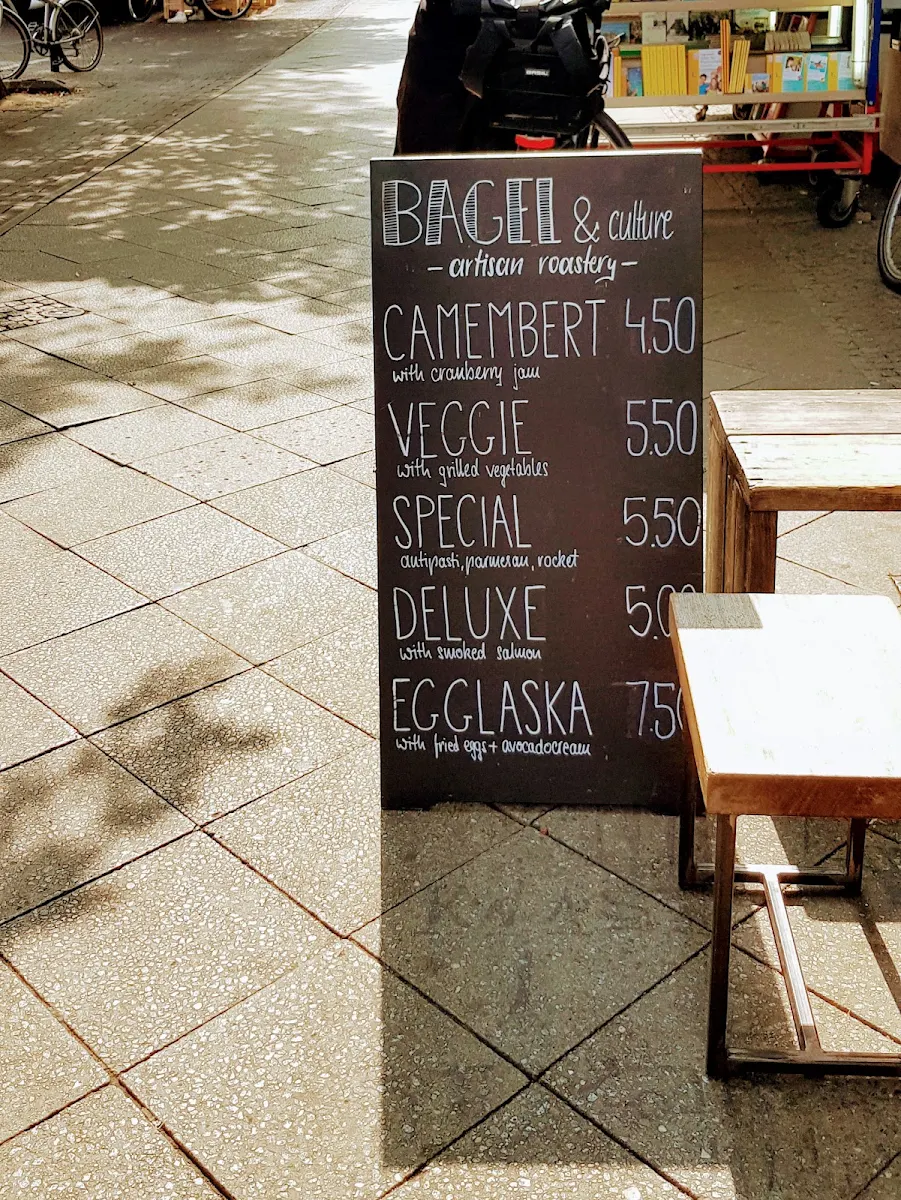 BASIL
BAGEL & culture
- artisan roastery -
CAMEMBERT 4.50
with cranberry jam
VEGGIE 5.50
with grilled vegetables
SPECIAL 5.50
antipasti, parmesan, rocket
DELUXE 5.00
with smoked salmon
EGGLASKA 7.50
with fried eggs + avocadocream